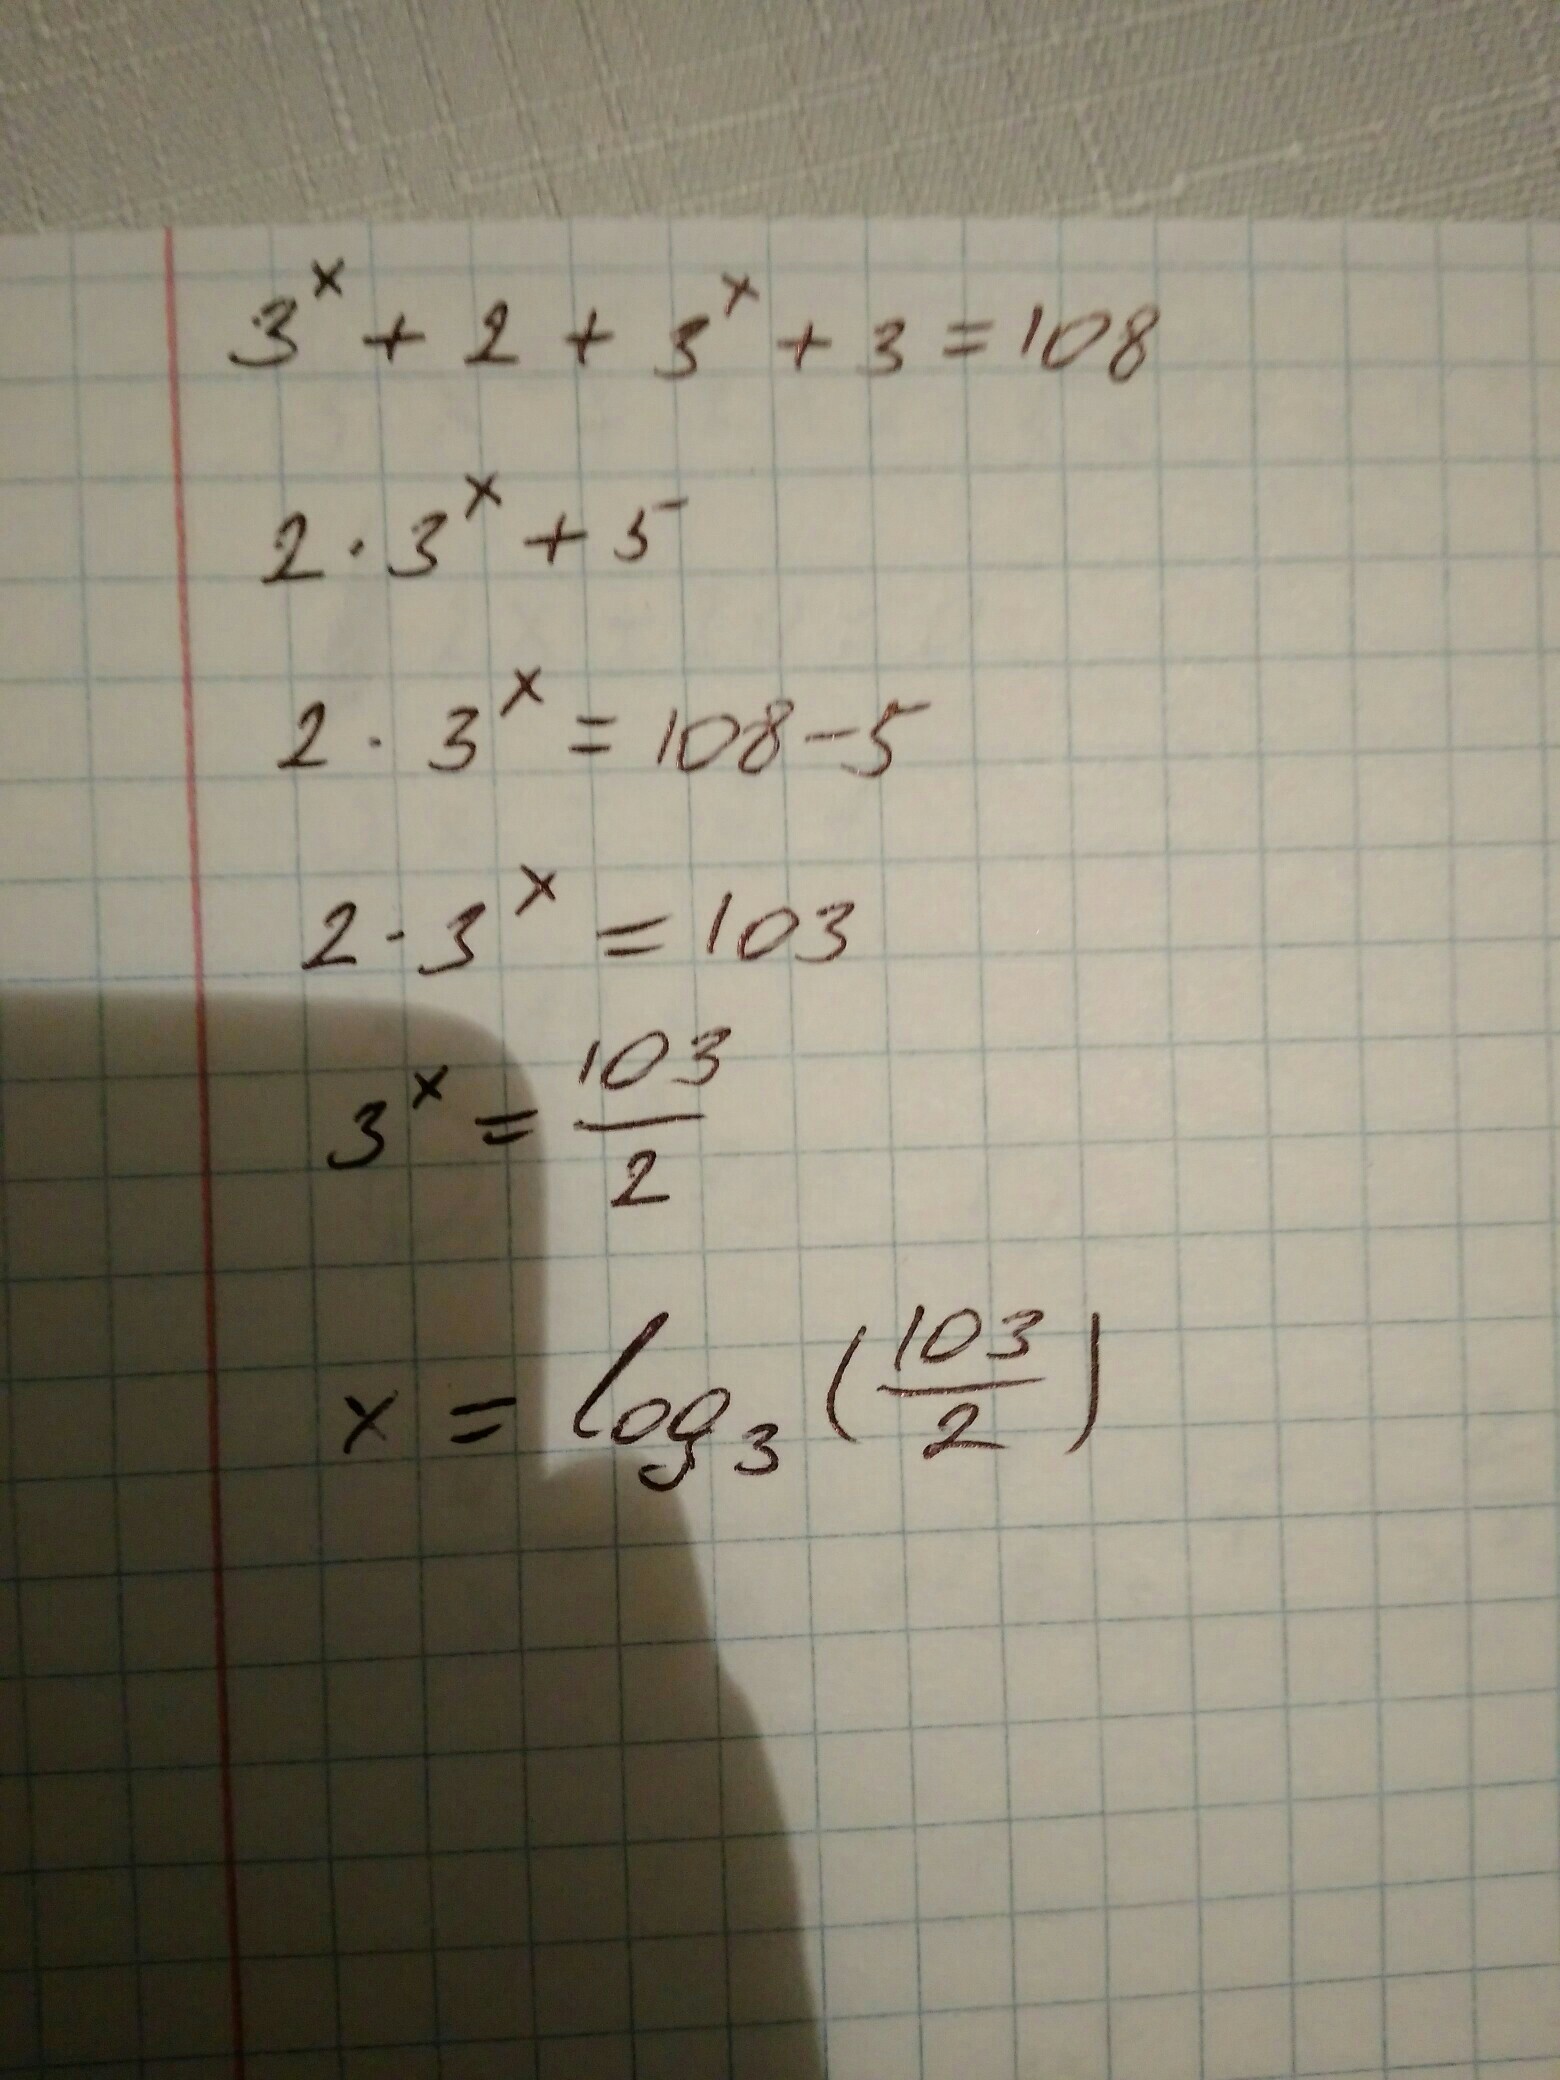 3^x + 2 + 3^x + 3 = 108
2 · 3^x + 5
2 · 3^x = 108 - 5
2 · 3^x = 103
3^x = 103/2
x = log₃ (103/2)